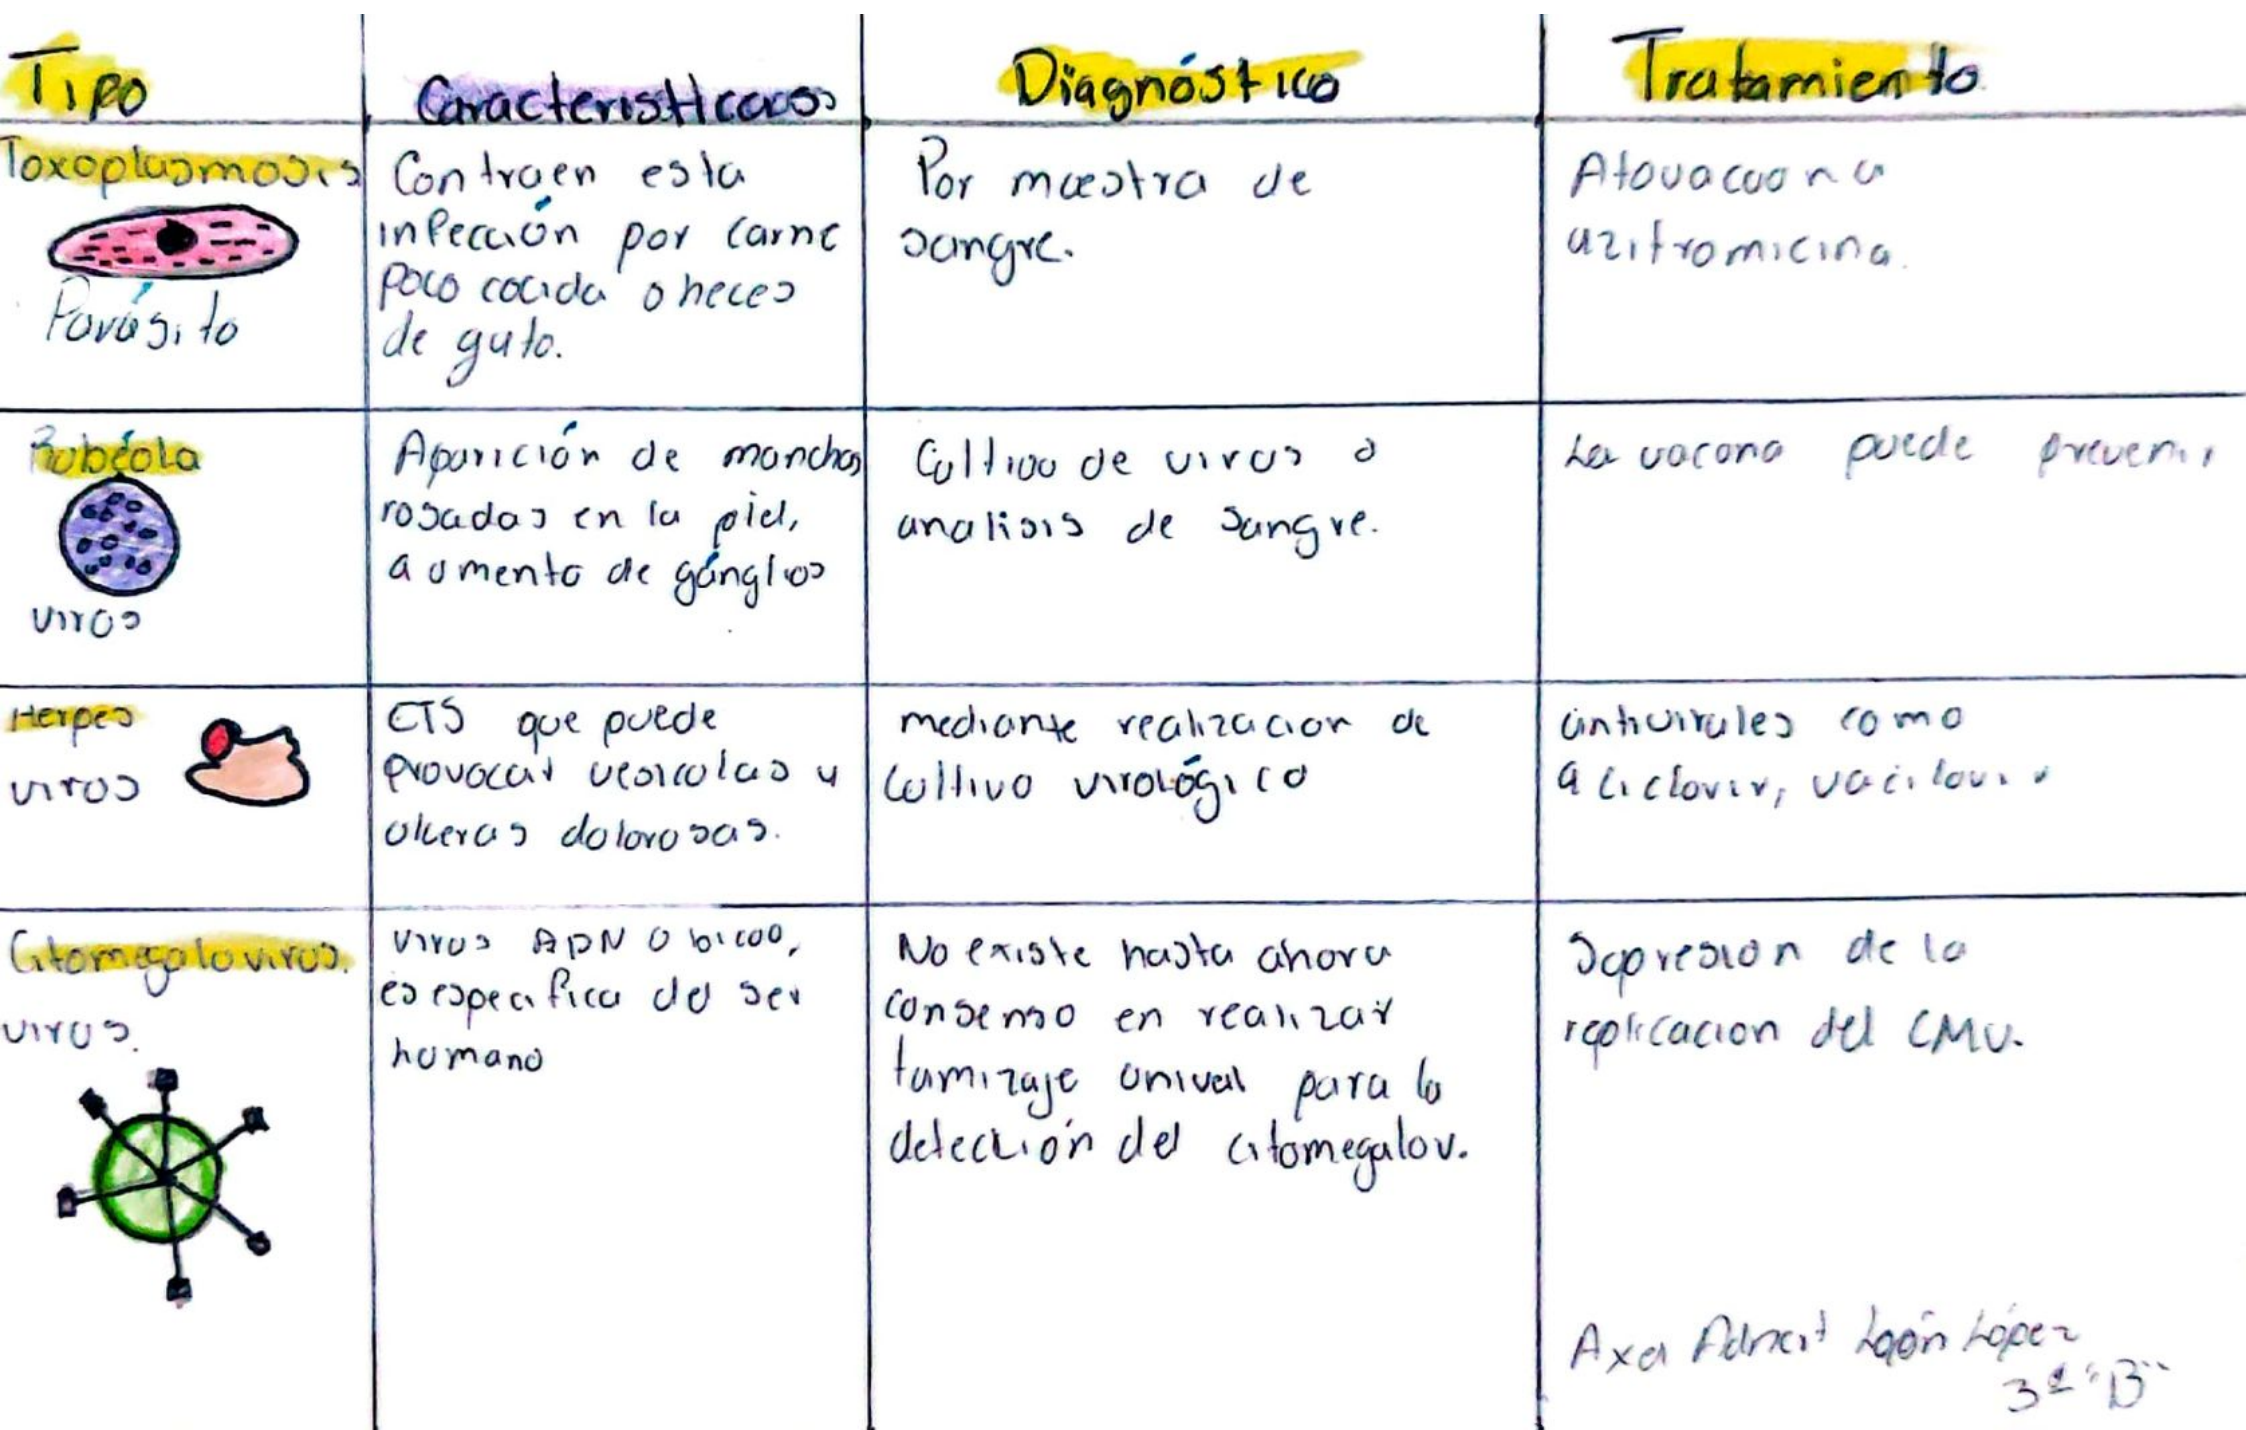 Tipo
Características
Diagnóstico
Tratamiento
Toxoplasmosis
Parásito
Contraen esta
infección por carne
poco cocida o heces
de gato.
Por muestra de
sangre.
Atovacuona
azitromicina.
Rubéola
virus
Aparición de manchas
rosadas en la piel,
aumento de gánglios
Cultivo de virus o
analisis de sangre.
La vacuna puede prevenir
Herpes
virus
ETS que puede
provocar vesiculas y
ulceras dolorosas.
mediante realizacion de
cultivo virológico
antivirales como
aciclovir, vacilovir
Citomegalovirus.
virus.
virus ADN Obicuo,
es especifica del ser
humano
No existe hasta ahora
consenso en realizar
tamizaje unival para la
detección del citomegalov.
Supresion de la
replicacion del CMV.
López
3º "B"